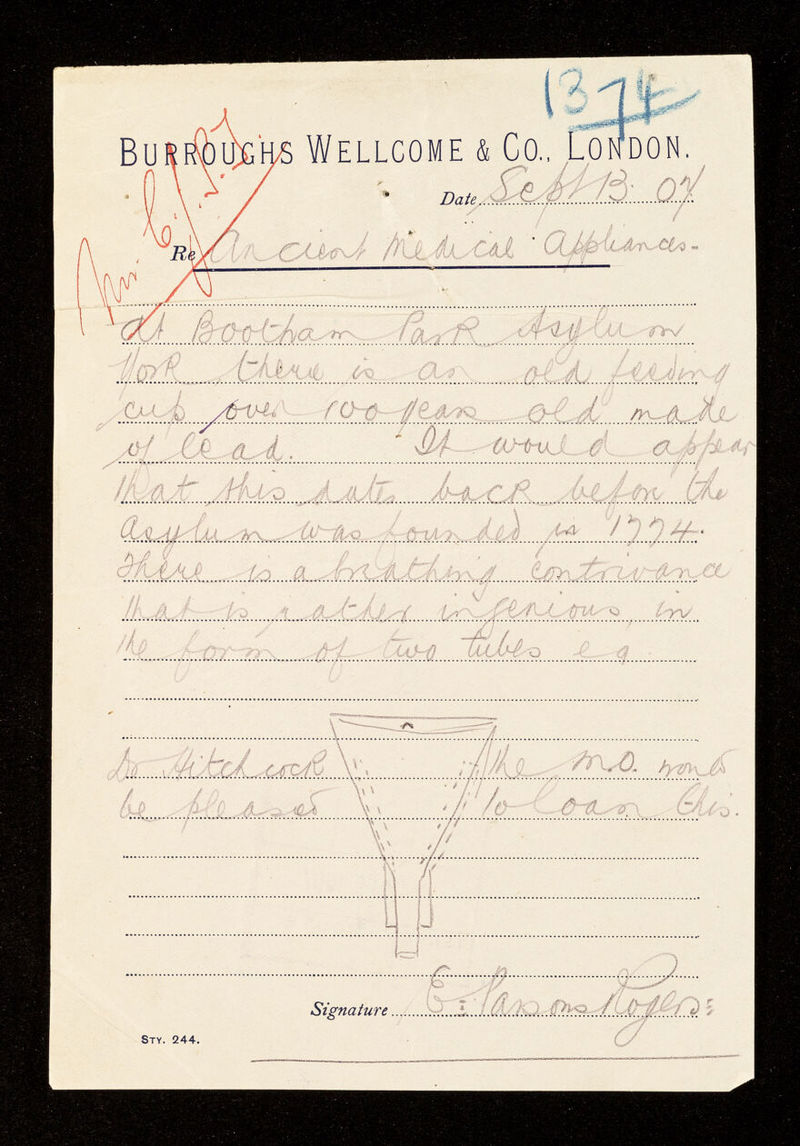 1374
BURROUGHS WELLCOME & CO., LONDON.
Mr C.J.S.T
Date Sept 13. 07
Re Ancient Medical Appliances -
At Bootham Park Asylum
York there is an old feeding
cup over 100 years old made
of lead. It would appear
that this dates back before the
Asylum was founded in 1774.
There is a breathing contrivance
that is rather ingenious, in
the form of two tubes e g
Dr Hitchcock the M.O. would
be pleased to loan this.
Signature E. Parsons Rogers
STY. 244.